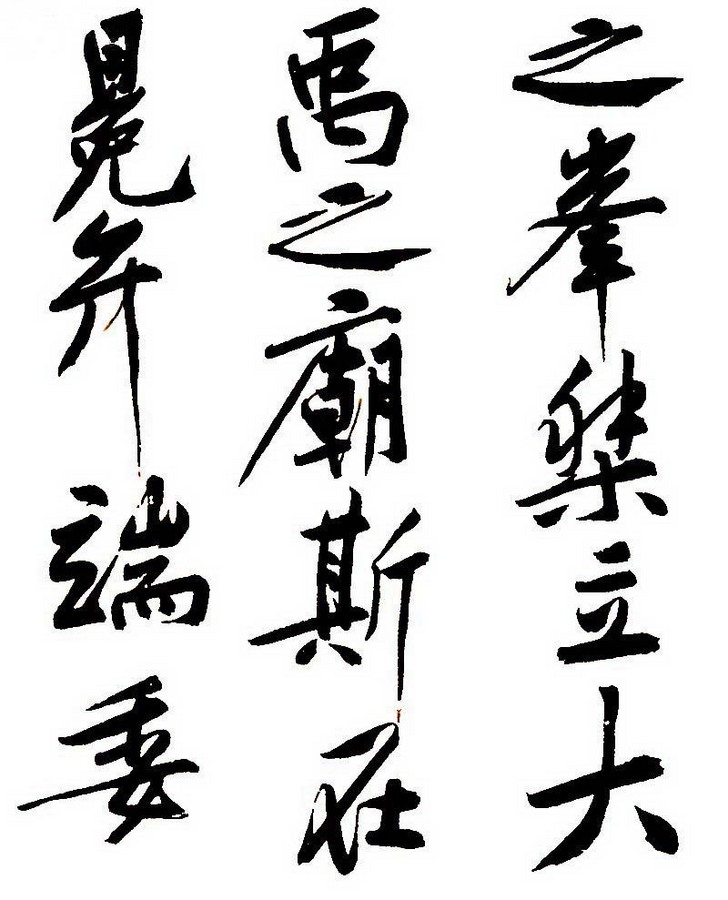 之峯桀立大
禹之廟斯在
冕弁端委